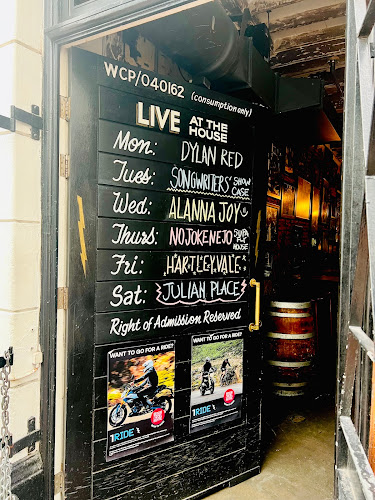 WCP/040162 (consumption only)
LIVE AT THE HOUSE
Mon: DYLAN RED
Tues: SONGWRITERS' SHOW CASE
Wed: ALANNA JOY
Thurs: NOJOKENEJO
Fri: HARTLEYVALE
Sat: JULIAN PLACE
Right of Admission Reserved
WANT TO GO FOR A RIDE?
1RIDE
WANT TO GO FOR A RIDE?
1RIDE